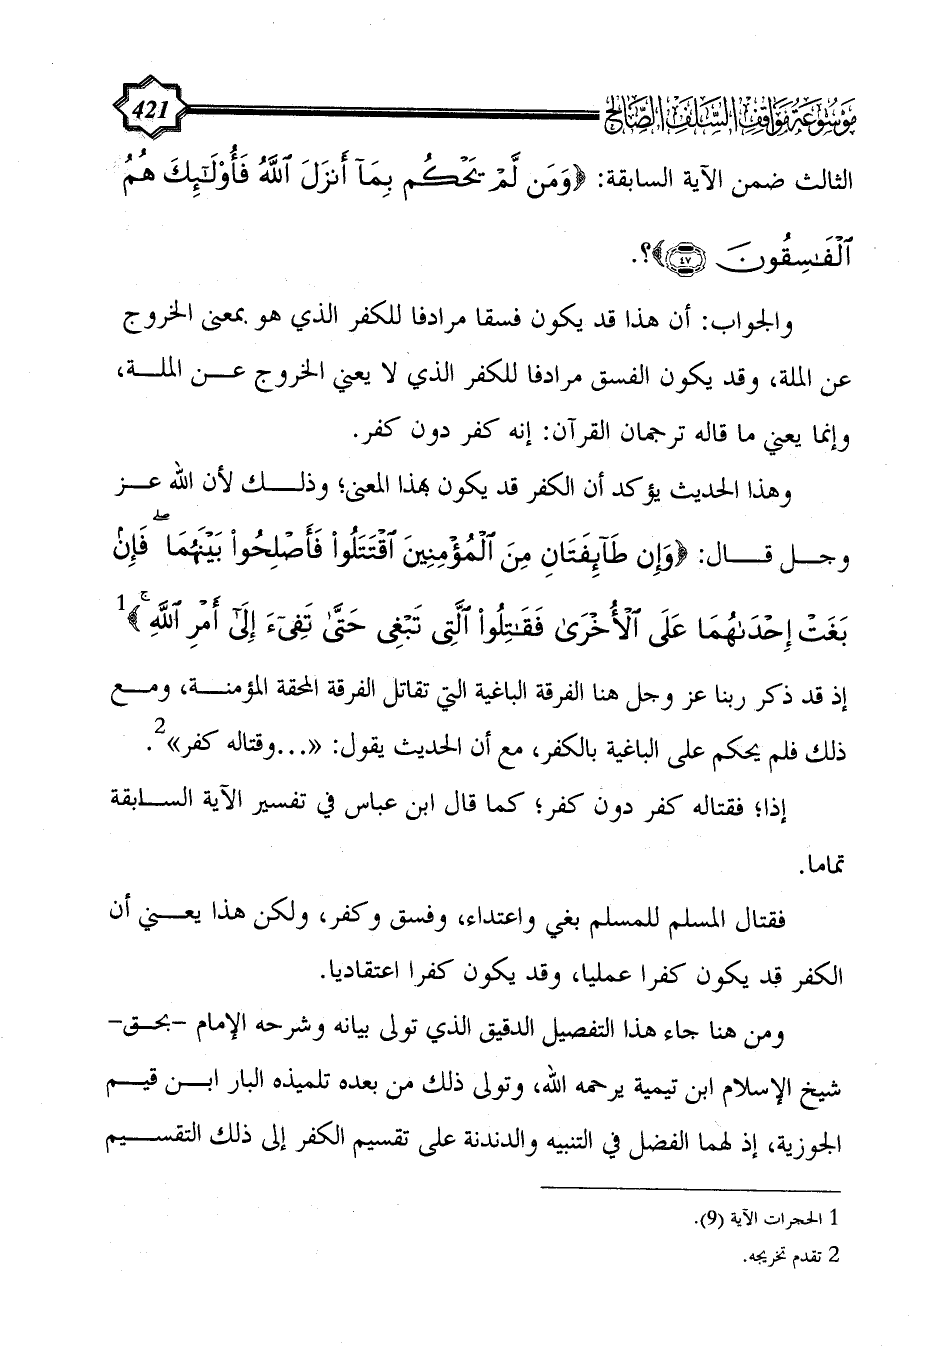 موسوعة مواقف السلف الصالح 421
الثالث ضمن الآية السابقة: ﴿وَمَن لَّمْ يَحْكُم بِمَآ أَنزَلَ ٱللَّهُ فَأُوْلَٰٓئِكَ هُمُ
ٱلْفَٰسِقُونَ ٤٧﴾؟.
والجواب: أن هذا قد يكون فسقا مرادفا للكفر الذي هو بمعنى الخروج
عن الملة، وقد يكون الفسق مرادفا للكفر الذي لا يعني الخروج عن الملة،
وإنما يعني ما قاله ترجمان القرآن: إنه كفر دون كفر.
وهذا الحديث يؤكد أن الكفر قد يكون بهذا المعنى؛ وذلك لأن الله عز
وجل قال: ﴿وَإِن طَآئِفَتَانِ مِنَ ٱلْمُؤْمِنِينَ ٱقْتَتَلُواْ فَأَصْلِحُواْ بَيْنَهُمَا ۖ فَإِنۢ
بَغَتْ إِحْدَىٰهُمَا عَلَى ٱلْأُخْرَىٰ فَقَٰتِلُواْ ٱلَّتِى تَبْغِى حَتَّىٰ تَفِىٓءَ إِلَىٰٓ أَمْرِ ٱللَّهِ ۚ﴾1
إذ قد ذكر ربنا عز وجل هنا الفرقة الباغية التي تقاتل الفرقة المحقة المؤمنة، ومع
ذلك فلم يحكم على الباغية بالكفر، مع أن الحديث يقول: «...وقتاله كفر»2.
إذا؛ فقتاله كفر دون كفر؛ كما قال ابن عباس في تفسير الآية السابقة
تماما.
فقتال المسلم للمسلم بغي واعتداء، وفسق وكفر، ولكن هذا يعني أن
الكفر قد يكون كفرا عمليا، وقد يكون كفرا اعتقاديا.
ومن هنا جاء هذا التفصيل الدقيق الذي تولى بيانه وشرحه الإمام -بحق-
شيخ الإسلام ابن تيمية يرحمه الله، وتولى ذلك من بعده تلميذه البار ابن قيم
الجوزية، إذ لهما الفضل في التنبيه والدندنة على تقسيم الكفر إلى ذلك التقسيم
1 الحجرات الآية (9).
2 تقدم تخريجه.